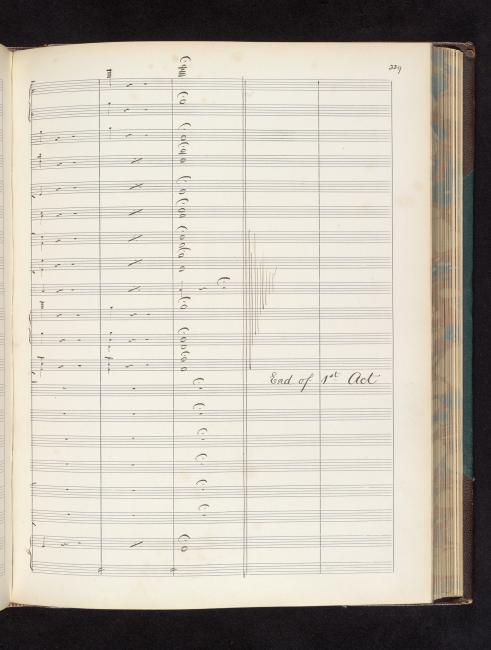 229
End of 1st Act